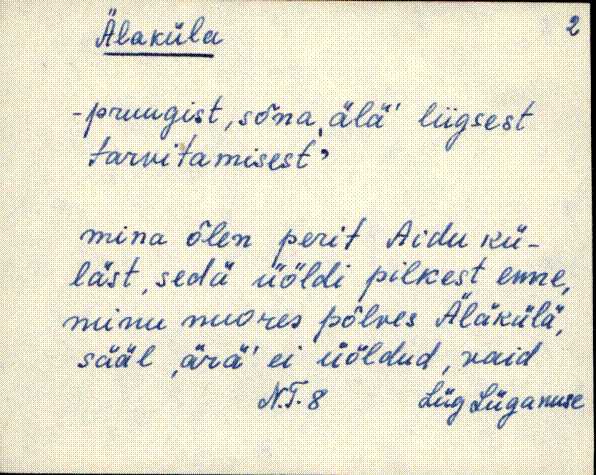 2
Äläküla
-pruugist, sõna ‚älä' liigsest
tarvitamisest,
mina õlen perit Aidu kü-
läst, sedä üöldi pilkest enne,
minu nuores põlves Äläkülä,
sääl ‚ärä' ei üöldud, vaid
N.T. 8 Lüg Lüganuse